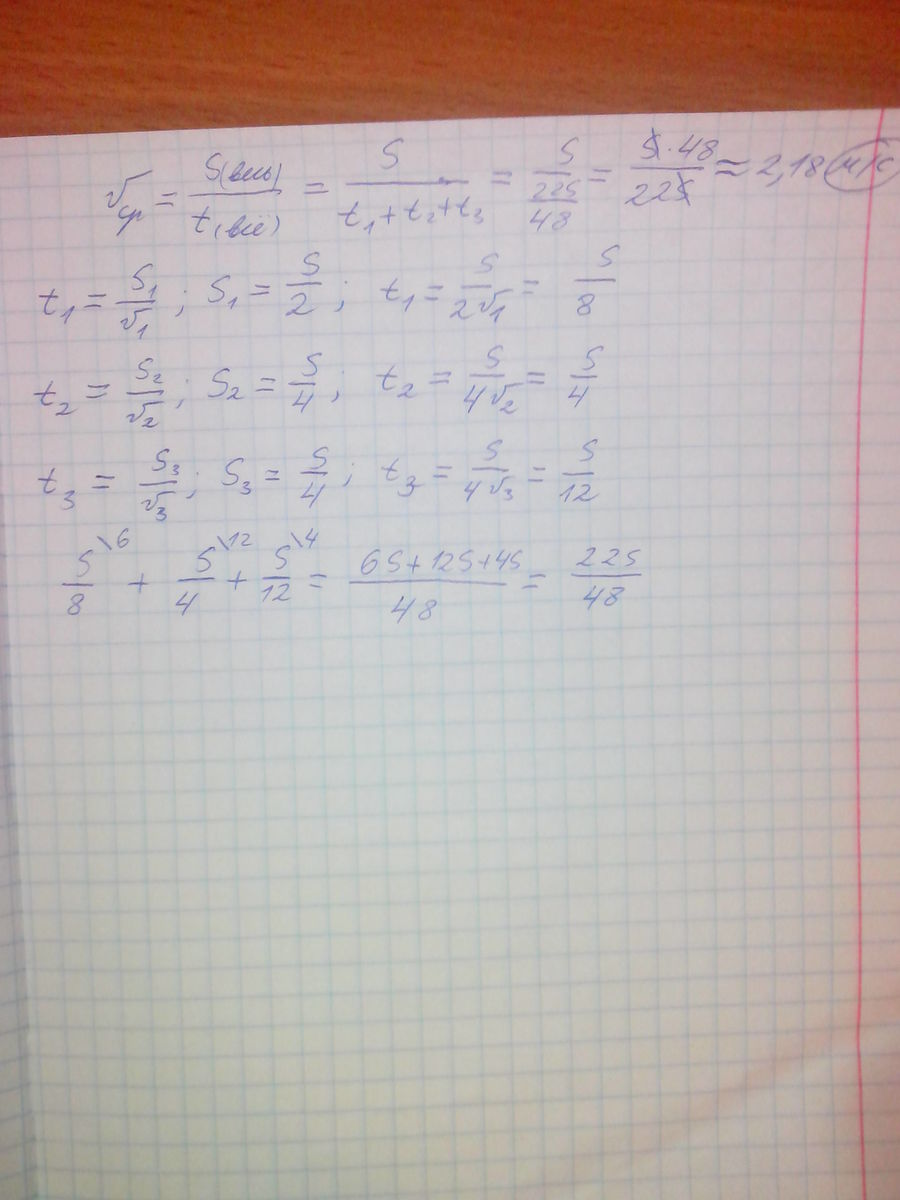 Vср = S(весь) / t(всё) = S / t₁+t₂+t₃ = S / 22S/48 = S·48 / 22S ≈ 2,18 м/с
t₁ = S₁/V₁ ; S₁ = S/2 ; t₁ = S/2V₁ = S/8
t₂ = S₂/V₂ ; S₂ = S/4 ; t₂ = S/4V₂ = S/4
t₃ = S₃/V₃ ; S₃ = S/4 ; t₃ = S/4V₃ = S/12
S\6/8 + S\12/4 + S\4/12 = 6S+12S+4S/48 = 22S/48